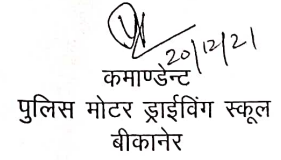 20/12/21
कमाण्डेन्ट
पुलिस मोटर ड्राईविंग स्कूल
बीकानेर